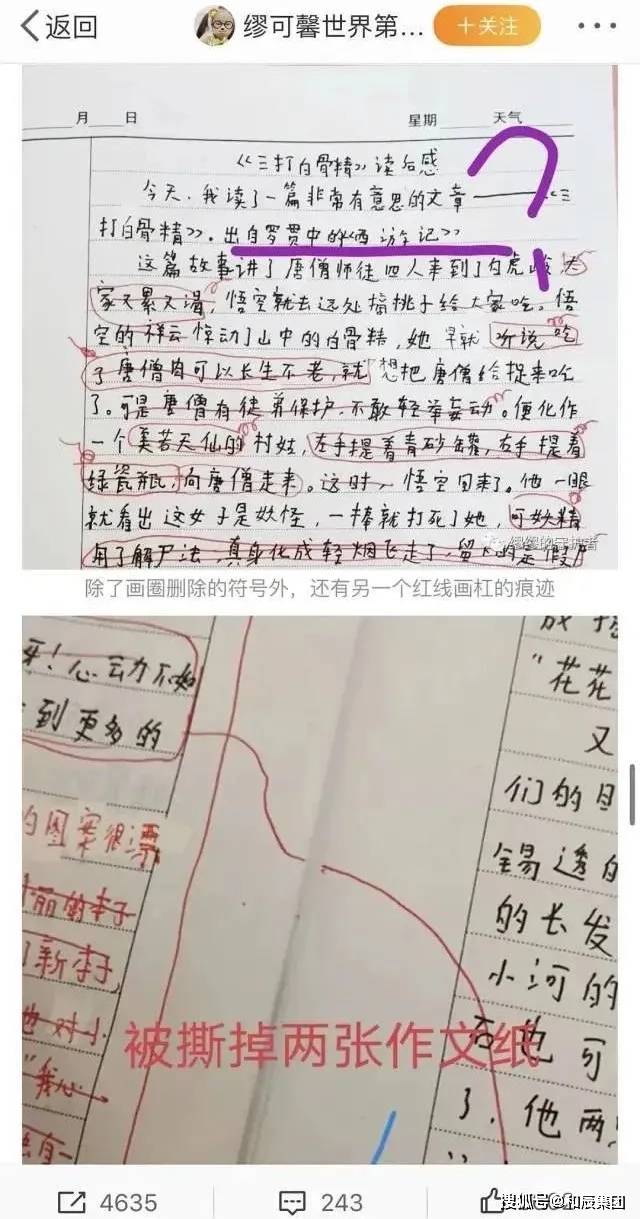 返回
缪可馨世界第...
+关注
月 日
星期 天气
《三打白骨精》读后感
今天,我读了一篇非常有意思的文章——《三
打白骨精》。出自罗贯中的《西游记》
这篇故事讲了唐僧师徒四人来到了白虎岭,大
家又累又渴,悟空就去远处摘桃子给大家吃。悟
空的祥云惊动了山中的白骨精,她早就听说吃
了唐僧肉可以长生不老,就想把唐僧给捉来吃
了。可是唐僧有徒弟保护,不敢轻举妄动。便化作
一个美若天仙的村姑,左手提着青砂罐,右手提着
绿瓷瓶,向唐僧走来。这时,悟空回来了。他一眼
就看出这女子是妖怪,一棒就打死了她,可妖精
用了解尸法,真身化成轻烟飞走了,留下的是假尸
缪缪的守护者
除了画圈删除的符号外,还有另一个红线画杠的痕迹
牙!心动不如
到更多的
的图案很漂
丽的李子
新李子
他对小
"我心
"花花
又
们的目
锡透的
的长发
小河的
后也可
了,他两
被撕掉两张作文纸
4635
243
搜狐号@和辰集团